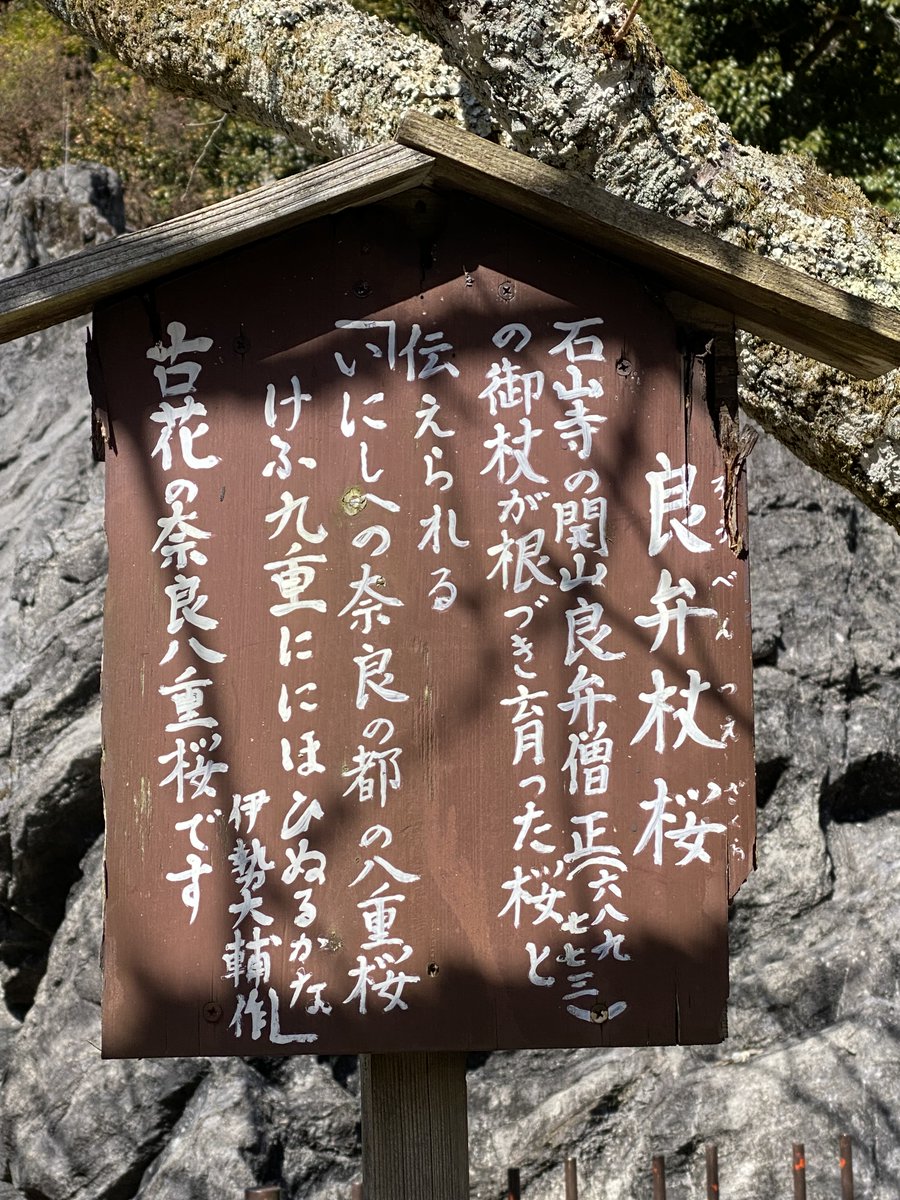 良弁杖桜
べんつえざくら
石山寺の開山良弁僧正(六八九
七七三)
の御杖が根づき育った桜と
伝えられる
「いにしへの奈良の都の八重桜
けふ九重ににほひぬるかな
伊勢大輔作」
花の奈良八重桜です